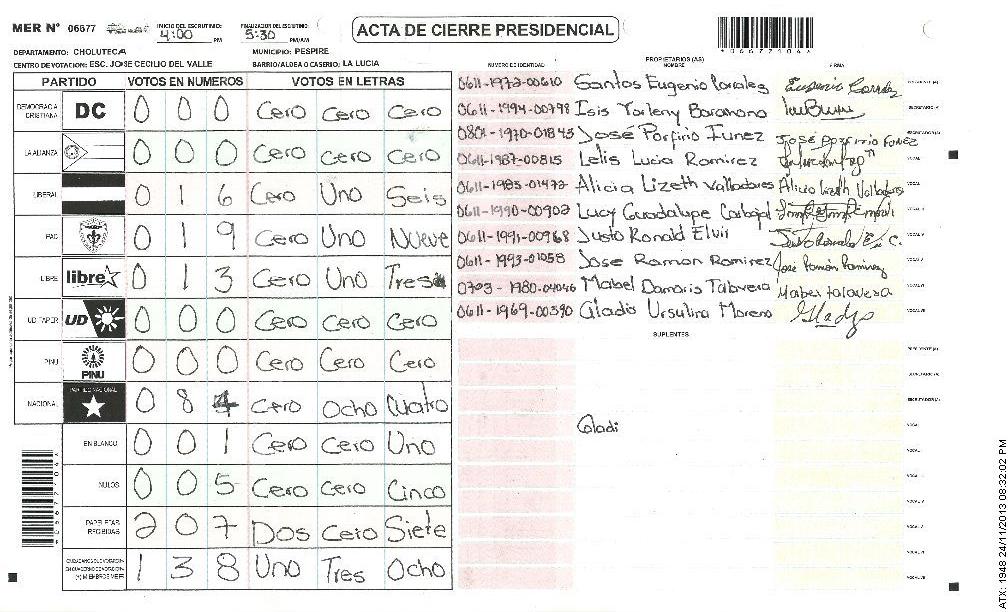 MER Nº 06677 INICIO DEL ESCRUTINIO: 4:00 PM FINALIZACION DEL ESCRUTINIO: 5:30 PM/AM
ACTA DE CIERRE PRESIDENCIAL
DEPARTAMENTO: CHOLUTECA MUNICIPIO: PESPIRE
CENTRO DE VOTACION: ESC. JOSE CECILIO DEL VALLE BARRIO/ALDEA O CASERIO: LA LUCIA
PARTIDO VOTOS EN NUMEROS VOTOS EN LETRAS
DEMOCRACIA CRISTIANA DC 0 0 0 Cero Cero Cero
LA ALIANZA 0 0 0 Cero Cero Cero
LIBERAL 0 1 6 Cero Uno Seis
PAC 0 1 9 Cero Uno Nueve
LIBRE libre 0 1 3 Cero Uno Tres
UD/FAPER UD 0 0 0 Cero Cero Cero
PINU PINU 0 0 0 Cero Cero Cero
NACIONAL PARTIDO NACIONAL 0 8 4 Cero Ocho Cuatro
EN BLANCO 0 0 1 Cero Cero Uno
NULOS 0 0 5 Cero Cero Cinco
PAPELETAS RECIBIDAS 2 0 7 Dos Cero Siete
1 3 8 Uno Tres Ocho
PROPIETARIOS (AS)
NUMERO DE IDENTIDAD NOMBRE FIRMA
0611-1972-00610 Santos Eugenio Corrales
0611-1994-00798 Isis Yorleny Barahona
0801-1970-01845 José Porfirio Funez José Porfirio Funez
0611-1987-00815 Lelis Lucia Ramirez
0611-1985-01472 Alicia Lizeth Valladores Alicia Lizeth Valladores
0611-1990-00902 Lucy Guadalupe Carbajal
0611-1991-00968 Justo Ronald Elvir
0611-1993-01058 Jose Ramon Ramirez José Ramón Ramirez
0703-1980-04046 Mabel Damaris Talavera Mabel talavera
0611-1969-00390 Gladis Ursulina Moreno Gladys
SUPLENTES
Gladi
*06677104*
ATX: 1948 24/11/2013 08:32:02 PM